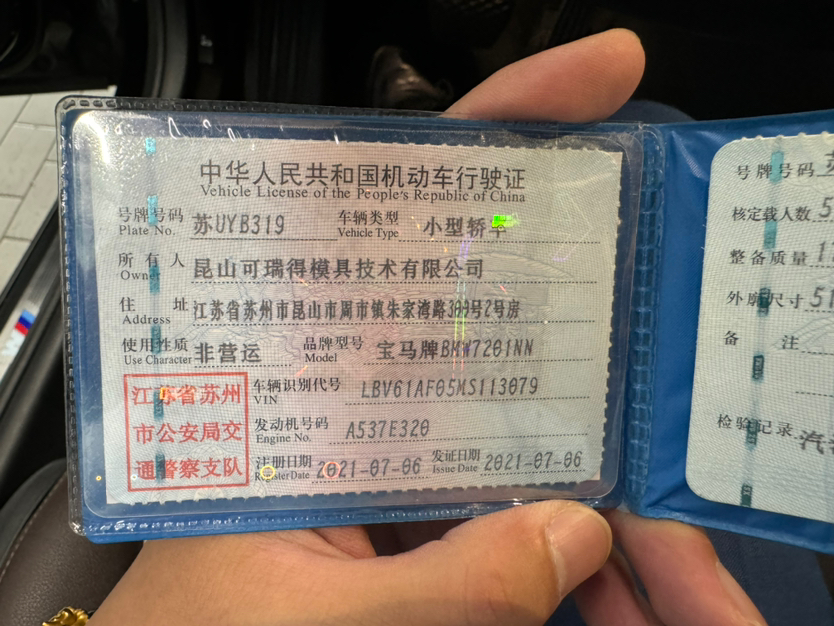 中华人民共和国机动车行驶证
Vehicle License of the People's Republic of China
号牌号码 苏UYB319 车辆类型 小型轿车
Plate No. Vehicle Type
所有人 昆山可瑞得模具技术有限公司
Owner
住址 江苏省苏州市昆山市周市镇朱家湾路309号2号房
Address
使用性质 非营运 品牌型号 宝马牌BMW7201NN
Use Character Model
江苏省苏州
市公安局交
通警察支队
车辆识别代号 LBV61AF05MS113079
VIN
发动机号码 A537E320
Engine No.
注册日期 2021-07-06 发证日期 2021-07-06
Register Date Issue Date
号牌号码
核定载人数 5
整备质量
外廓尺寸
备注
检验记录